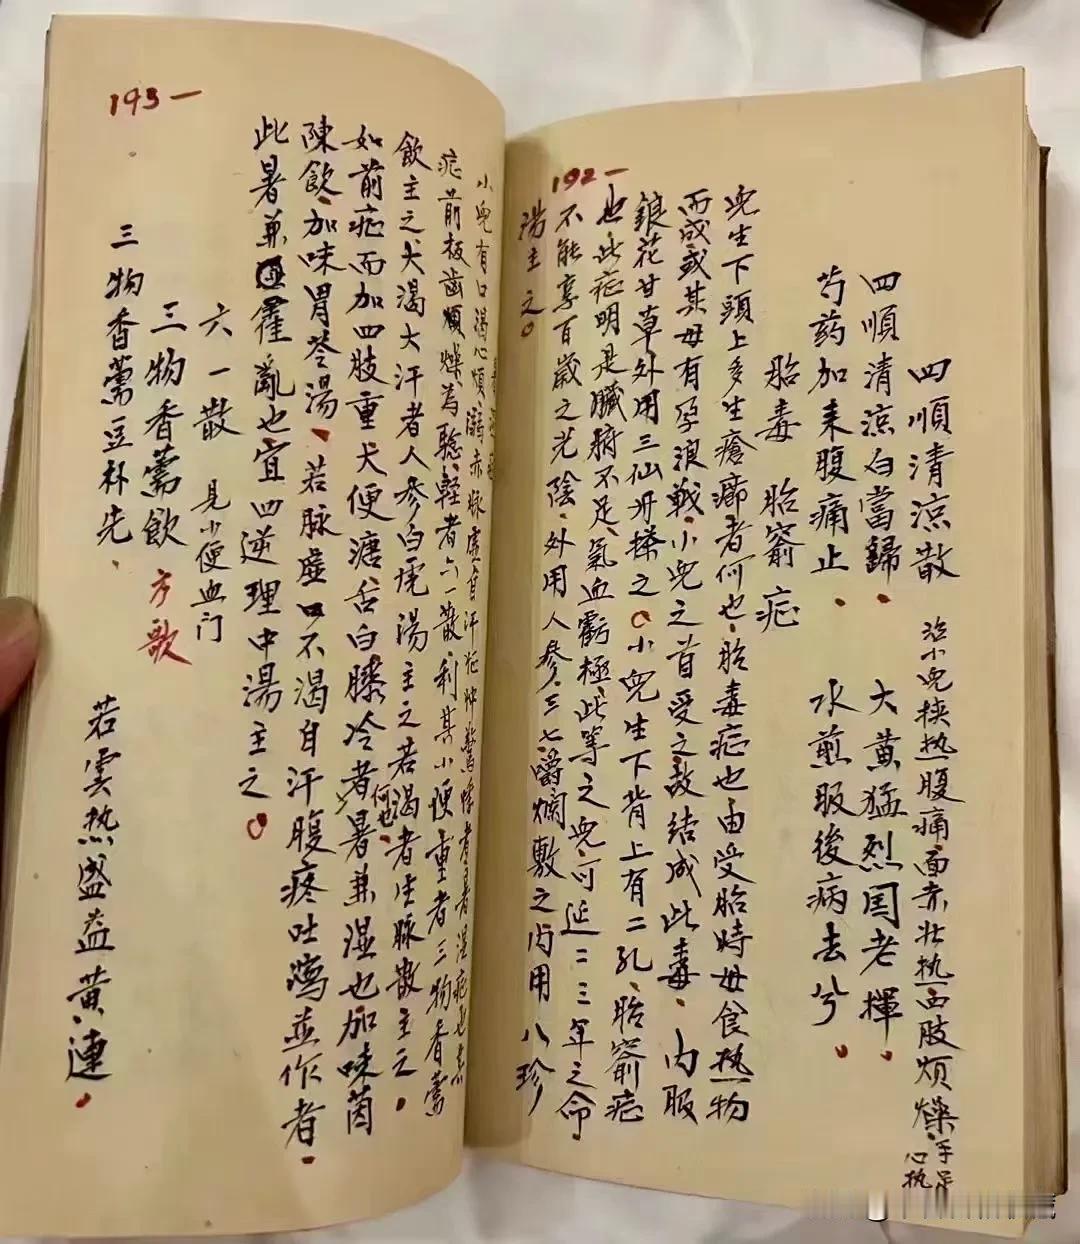 192一
四順清涼散 治小兒挟热腹痛面赤壮热四肢烦燥手足心热
四順清涼白當歸 大黄猛烈国老揮
芍药加来腹痛止 水煎服後病去兮
胎毒 胎窬症
兒生下頭上多生瘡癤者何也胎毒症也由受胎時母食热物
而成或某母有孕浪战小兒之首受之故结成此毒內服
銀花甘草外用三仙丹搽之小兒生下背上有二孔胎窬症
也此症明是臟腑不足氣血虧極此等之兒可延二三年之命
不能享百歲之光陰外用人參三七嚼爛敷之內用八珍
湯主之
193一
小兒有口渴心煩溺赤脉虛自汗 者暑濕症也
症前板齒煩燥為驗輕者六一散利其小便重者三物香薷
飲主之大渴大汗者人參白虎湯主之若渴者生脉散主之
如前症而加四肢重大便溏舌白膝冷者何也暑兼濕也加味茵
陳飲加味胃苓湯若脉虛口不渴自汗腹疼吐瀉並作者
此暑兼霍亂也宜四逆理中湯主之
六一散 見小便血门
三物香薷飲 方歌
三物香薷豆朴先 若雲热盛益黄連